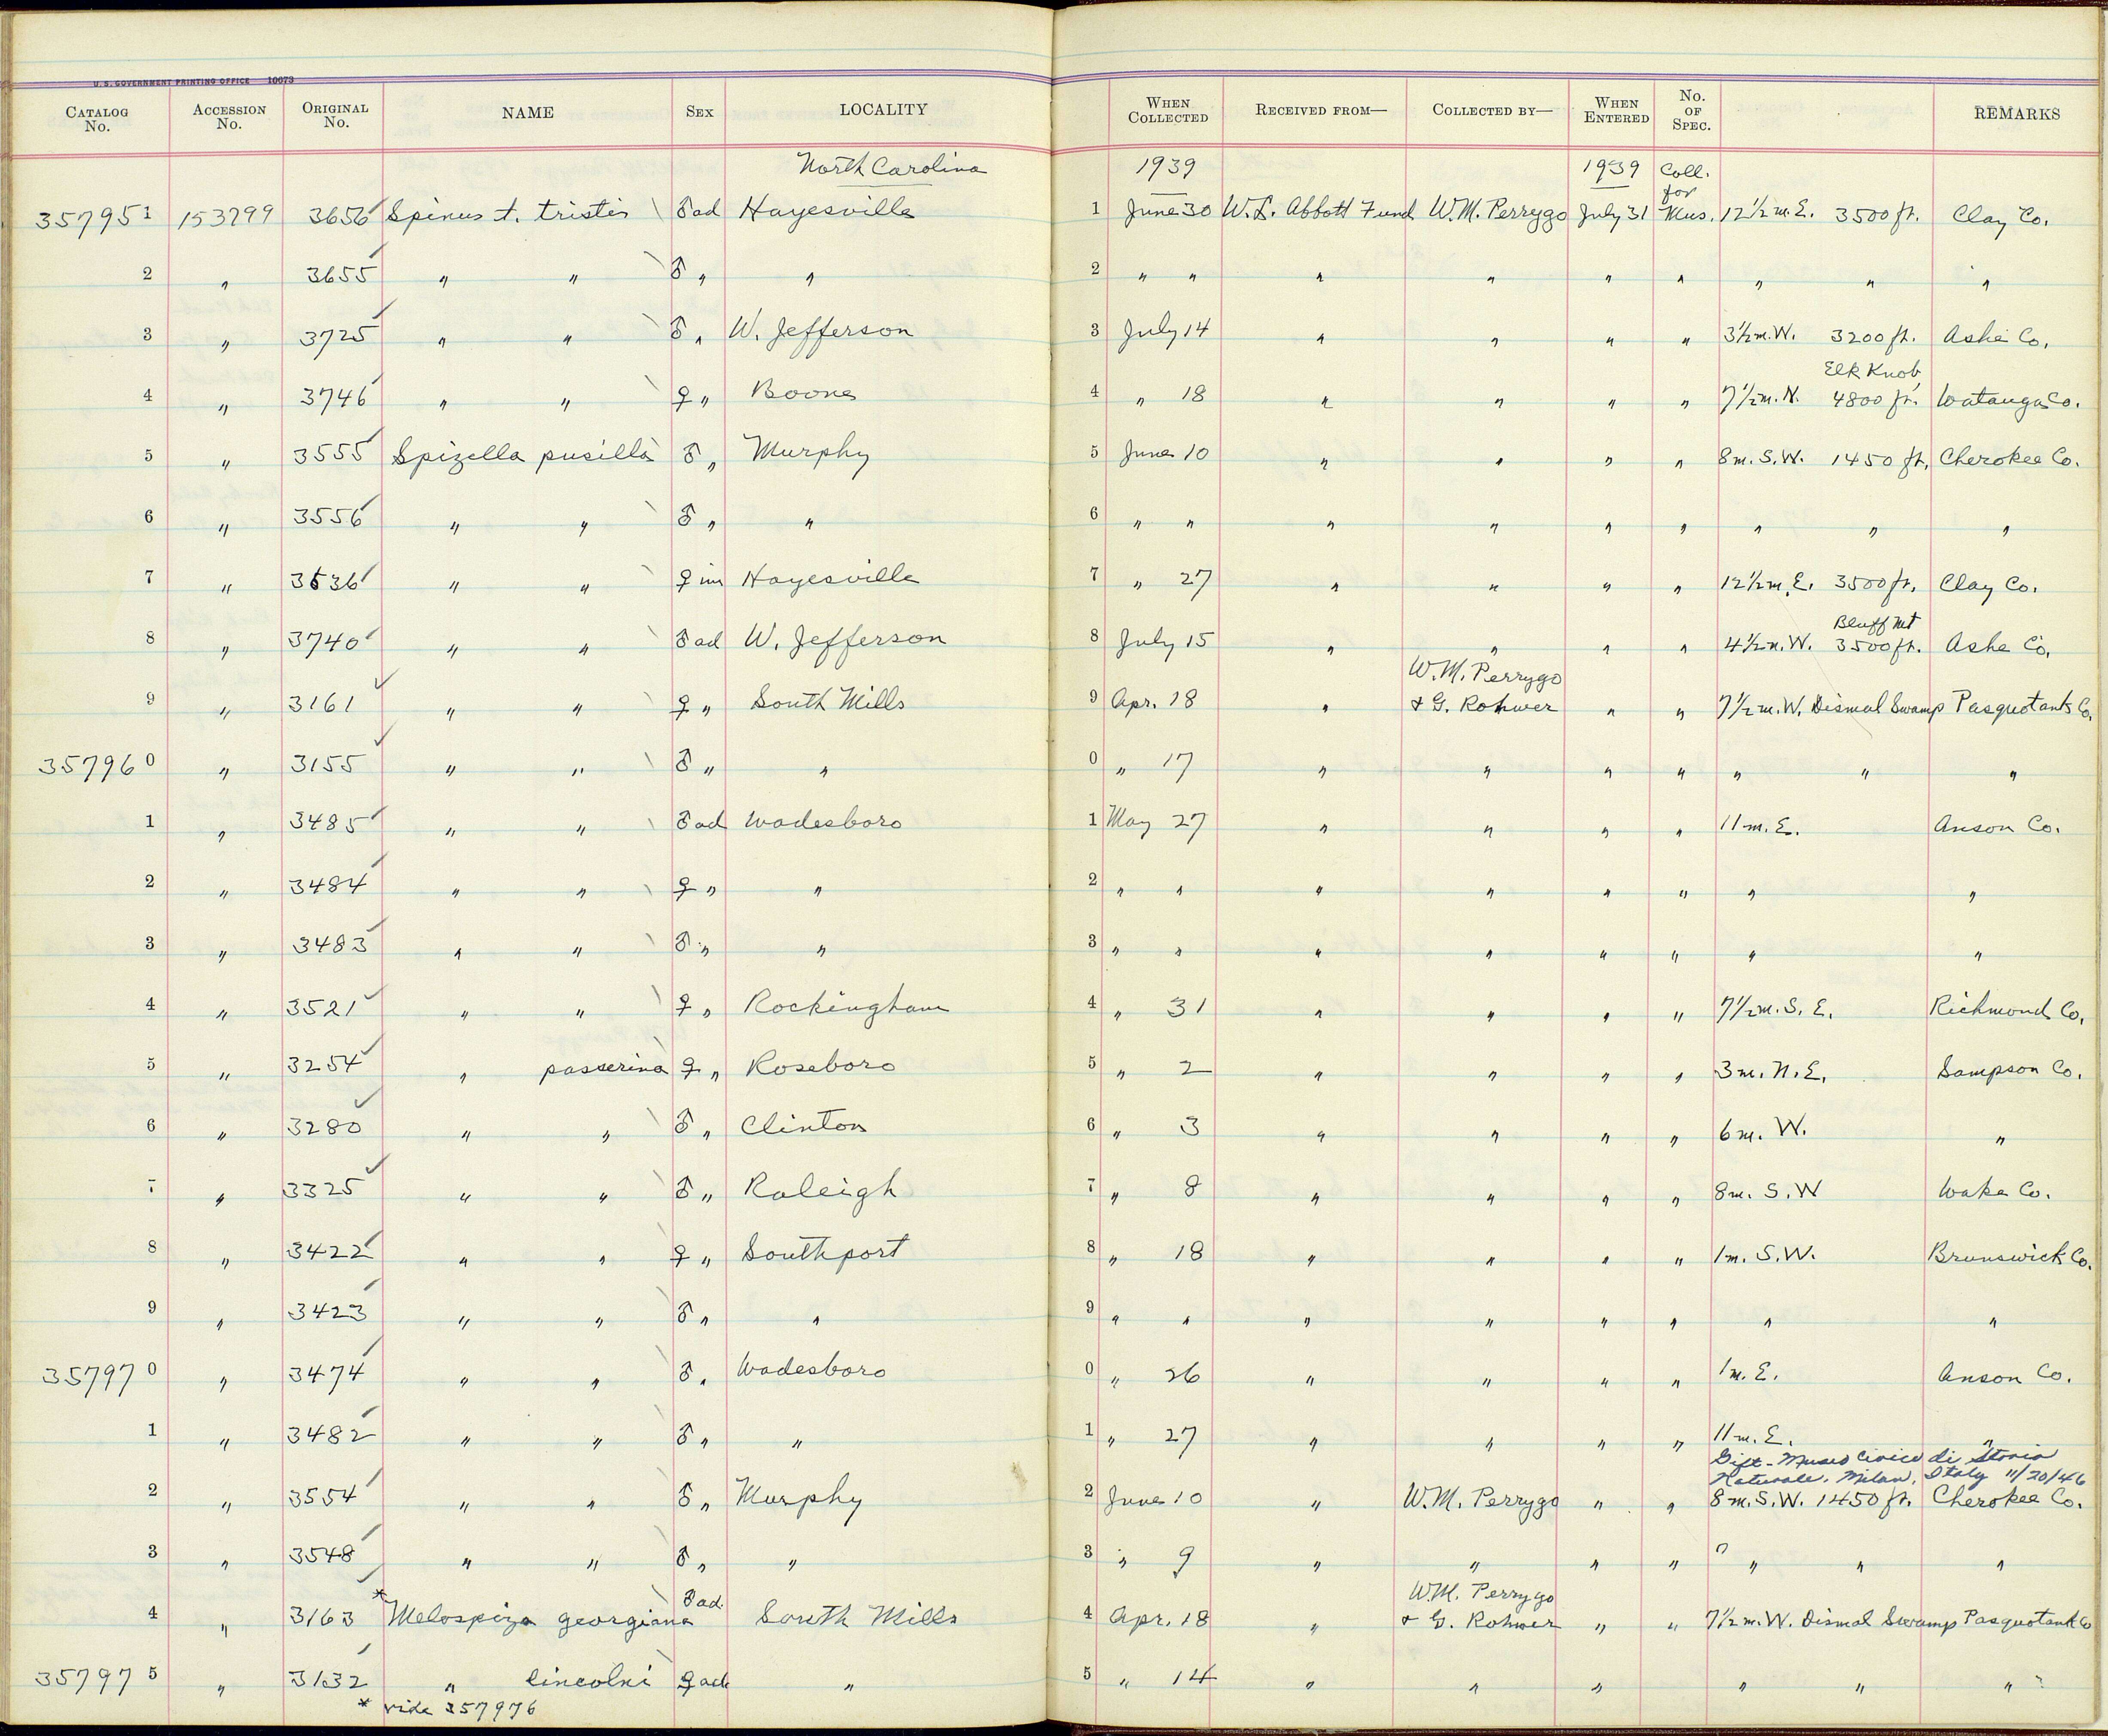 U. S. GOVERNMENT PRINTING OFFICE 10073
CATALOG No. ACCESSION No. ORIGINAL No. NAME SEX LOCALITY WHEN COLLECTED RECEIVED FROM— COLLECTED BY— WHEN ENTERED No. OF SPEC. REMARKS
North Carolina 1939 1939 Coll. for
357951 153299 3656 Spinus t. tristis ♂ ad Hayesville 1 June 30 W. L. Abbott Fund W. M. Perrygo July 31 Mus. 12½ m. E. 3500 ft. Clay Co.
2 " 3655 " " ♂ " " 2 " " " " " " " " "
3 " 3725 " " ♂ " W. Jefferson 3 July 14 " " " " 3½ m. W. 3200 ft. Ashe Co.
Elk Knob
4 " 3746 " " ♀ " Boone 4 " 18 " " " " 7½ m. N. 4800 ft. Watauga Co.
5 " 3555 Spizella pusilla ♂ " Murphy 5 June 10 " " " " 8 m. S. W. 1450 ft. Cherokee Co.
6 " 3556 " " ♂ " " 6 " " " " " " " " "
7 " 3636 " " ♀ im Hayesville 7 " 27 " " " " 12½ m. E. 3500 ft. Clay Co.
Bluff Mt
8 " 3740 " " ♂ ad W. Jefferson 8 July 15 " " " " 4½ m. W. 3500 ft. Ashe Co.
W. M. Perrygo
9 " 3161 " " ♀ " South Mills 9 Apr. 18 " & G. Rohwer " " 7½ m. W. Dismal Swamp Pasquotank Co.
357960 " 3155 " " ♂ " " 0 " 17 " " " " " " "
1 " 3485 " " ♂ ad Wadesboro 1 May 27 " " " " 11 m. E. Anson Co.
2 " 3484 " " ♀ " " 2 " " " " " " " "
3 " 3483 " " ♂ " " 3 " " " " " " " "
4 " 3521 " " ♀ " Rockingham 4 " 31 " " " " 7½ m. S. E. Richmond Co.
5 " 3254 " passerina ♀ " Roseboro 5 " 2 " " " " 3 m. N. E. Sampson Co.
6 " 3280 " " ♂ " Clinton 6 " 3 " " " " 6 m. W. "
7 " 3325 " " ♂ " Raleigh 7 " 8 " " " " 8 m. S. W Wake Co.
8 " 3422 " " ♀ " Southport 8 " 18 " " " " 1 m. S. W. Brunswick Co.
9 " 3423 " " ♂ " " 9 " " " " " " " "
357970 " 3474 " " ♂ " Wadesboro 0 " 26 " " " " 1 m. E. Anson Co.
1 " 3482 " " ♂ " " 1 " 27 " " " " 11 m. E. "
Gift - Museo Civico di Storia
Naturale, Milan, Italy 11/20/46
2 " 3554 " " ♂ " Murphy 2 June 10 " W. M. Perrygo " " 8 m. S. W. 1450 ft. Cherokee Co.
3 " 3548 " " ♂ " " 3 " 9 " " " " " " "
W. M. Perrygo
4 " 3163 * Melospiza georgiana ♂ ad. South Mills 4 Apr. 18 " & G. Rohwer " " 7½ m. W. Dismal Swamp Pasquotank Co
357975 " 3132 " lincolni ♀ ad " 5 " 14 " " " " " "
* vide 357976